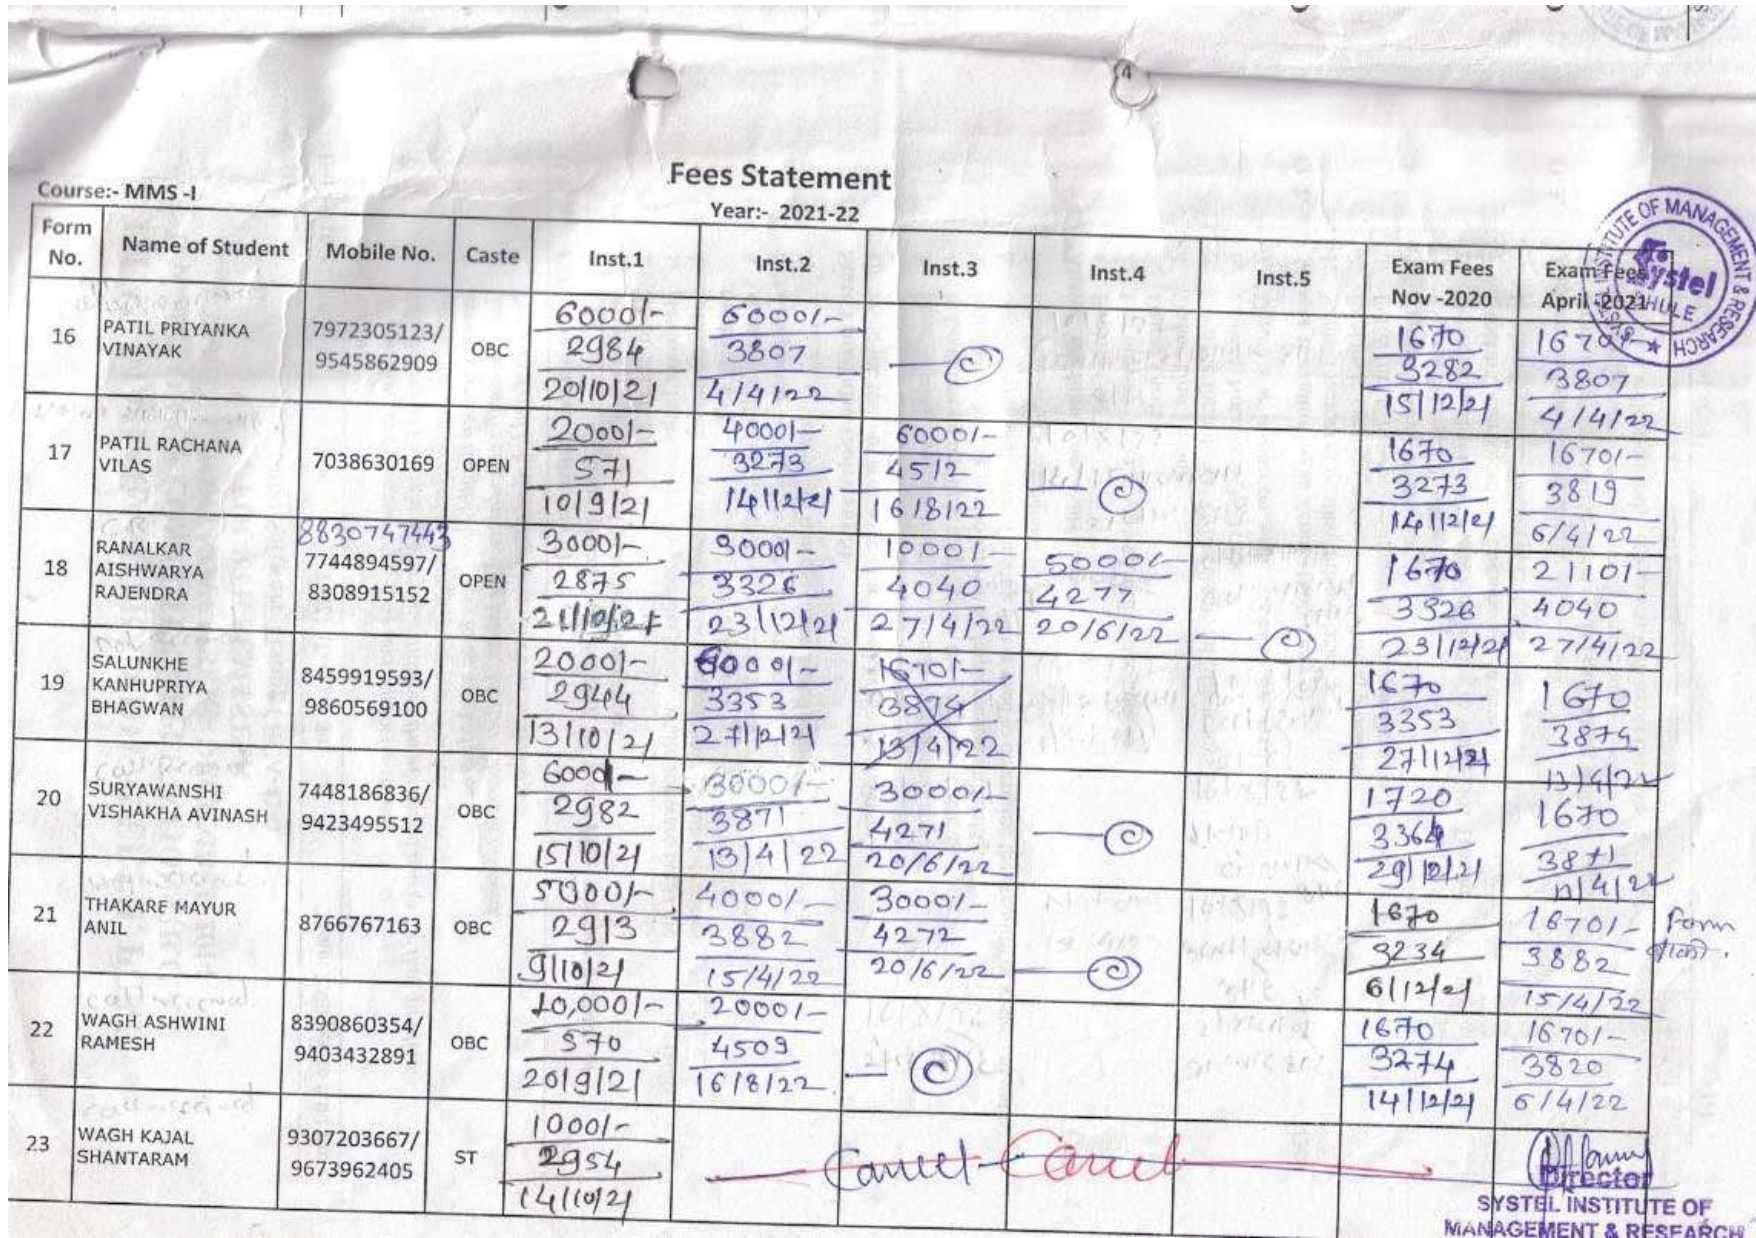 Fees Statement
Course:- MMS -I
Year:- 2021-22
Form No. Name of Student Mobile No. Caste Inst.1 Inst.2 Inst.3 Inst.4 Inst.5 Exam Fees Nov -2020 Exam Fees April -2021
INSTITUTE OF MANAGEMENT & RESEARCH
Systel
DHULE
16 PATIL PRIYANKA VINAYAK 7972305123/ 9545862909 OBC 6000/- 2984 20/10/21 6000/- 3807 4/4/22 1670 3282 15/12/21 1670/- 3807 4/4/22
17 PATIL RACHANA VILAS 7038630169 OPEN 2000/- 571 10/9/21 4000/- 3273 14/12/21 6000/- 4512 16/8/22 1670 3273 14/12/21 1670/- 3819 6/4/22
18 RANALKAR AISHWARYA RAJENDRA 8830747443 7744894597/ 8308915152 OPEN 3000/- 2875 3000/- 3326 23/12/21 1000/- 4040 27/4/22 5000/- 4277 20/6/22 1670 3326 23/12/21 2110/- 4040 27/4/22
19 SALUNKHE KANHUPRIYA BHAGWAN 8459919593/ 9860569100 OBC 2000/- 2944 13/10/21 3353 27/12/21 1670/- 3874 13/4/22 1670 3353 27/12/21 1670 3874 13/4/22
20 SURYAWANSHI VISHAKHA AVINASH 7448186836/ 9423495512 OBC 6000/- 2982 15/10/21 3000/- 3871 13/4/22 3000/- 4271 20/6/22 1720 3364 29/12/21 1670 3871 13/4/22
21 THAKARE MAYUR ANIL 8766767163 OBC 5000/- 2913 9/10/21 4000/- 3882 15/4/22 3000/- 4272 20/6/22 1670 3234 6/12/21 1670/- 3882 15/4/22 Form
22 WAGH ASHWINI RAMESH 8390860354/ 9403432891 OBC 10,000/- 570 20/9/21 2000/- 4509 16/8/22 1670 3274 14/12/21 1670/- 3820 6/4/22
23 WAGH KAJAL SHANTARAM 9307203667/ 9673962405 ST 1000/- 2954 14/10/21 Cancel Cancel
Director
SYSTEL INSTITUTE OF
MANAGEMENT & RESEARCH